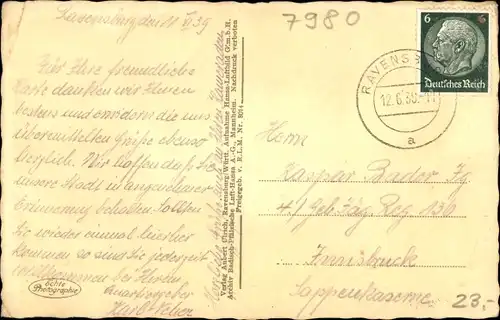 Ravensburg den 11 VI 39
Für Ihre freundliche
Karte danken wir Ihnen
bestens und erwidern die uns
übermittelten Grüße ebenso
herzlich. Wir hoffen daß Sie
unsere Stadt in angenehmer
Erinnerung behalten. Sollten
Sie wieder einmal hierher
kommen so sind Sie jederzeit
willkommen bei Ihrem
Quartiergeber
echte
Photographie
Verlag Anbert Ulrich, Ravensburg/Württ. Aufnahme Hansa-Luftbild G.m.b.H.
Archiv Badisch-Pfälzische Luft-Hansa A.-G., Mannheim. Nachdruck verboten
Freigegeben v. R.L.M. Nr.
7980
6
Deutsches Reich
RAVENSB
12.6.39.-11
a
Herrn
Kaspar Bader Jg.
4./Geb. Jäg. Reg. 136
Innsbruck
23,-